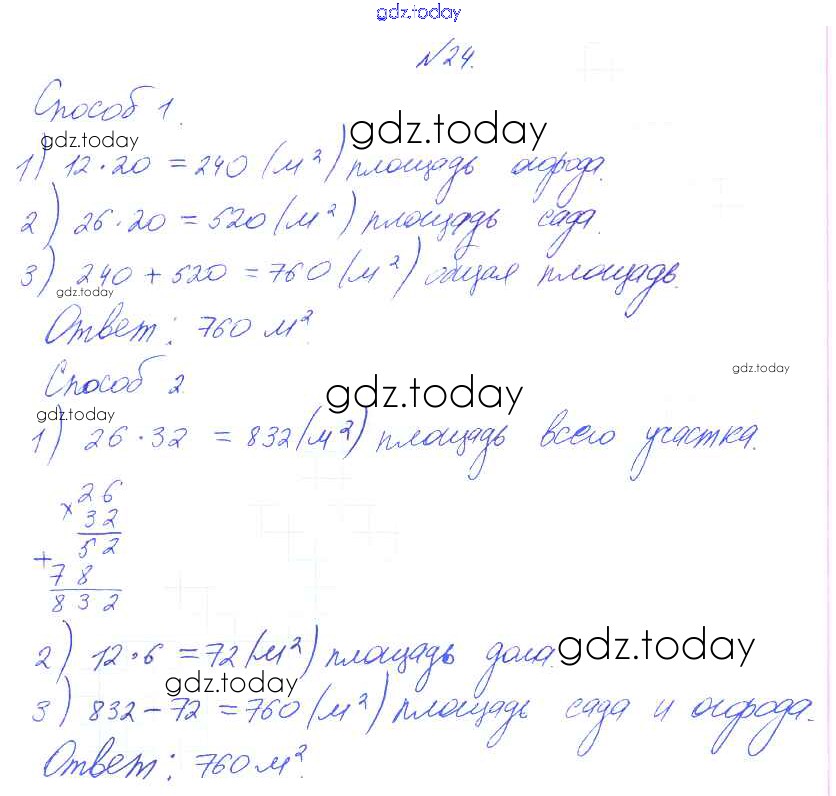 gdz.today
№24.
Способ 1.
gdz.today
gdz.today
1) 12·20 = 240 (м²) площадь огорода.
2) 26·20 = 520 (м²) площадь сада.
3) 240 + 520 = 760 (м²) общая площадь.
gdz.today
Ответ: 760 м².
Способ 2
gdz.today
gdz.today
gdz.today
1) 26·32 = 832 (м²) площадь всего участка.
× 26
32
52
+
78
832
2) 12·6 = 72 (м²) площадь дома.
gdz.today
gdz.today
3) 832 – 72 = 760 (м²) площадь сада и огорода.
Ответ: 760 м².